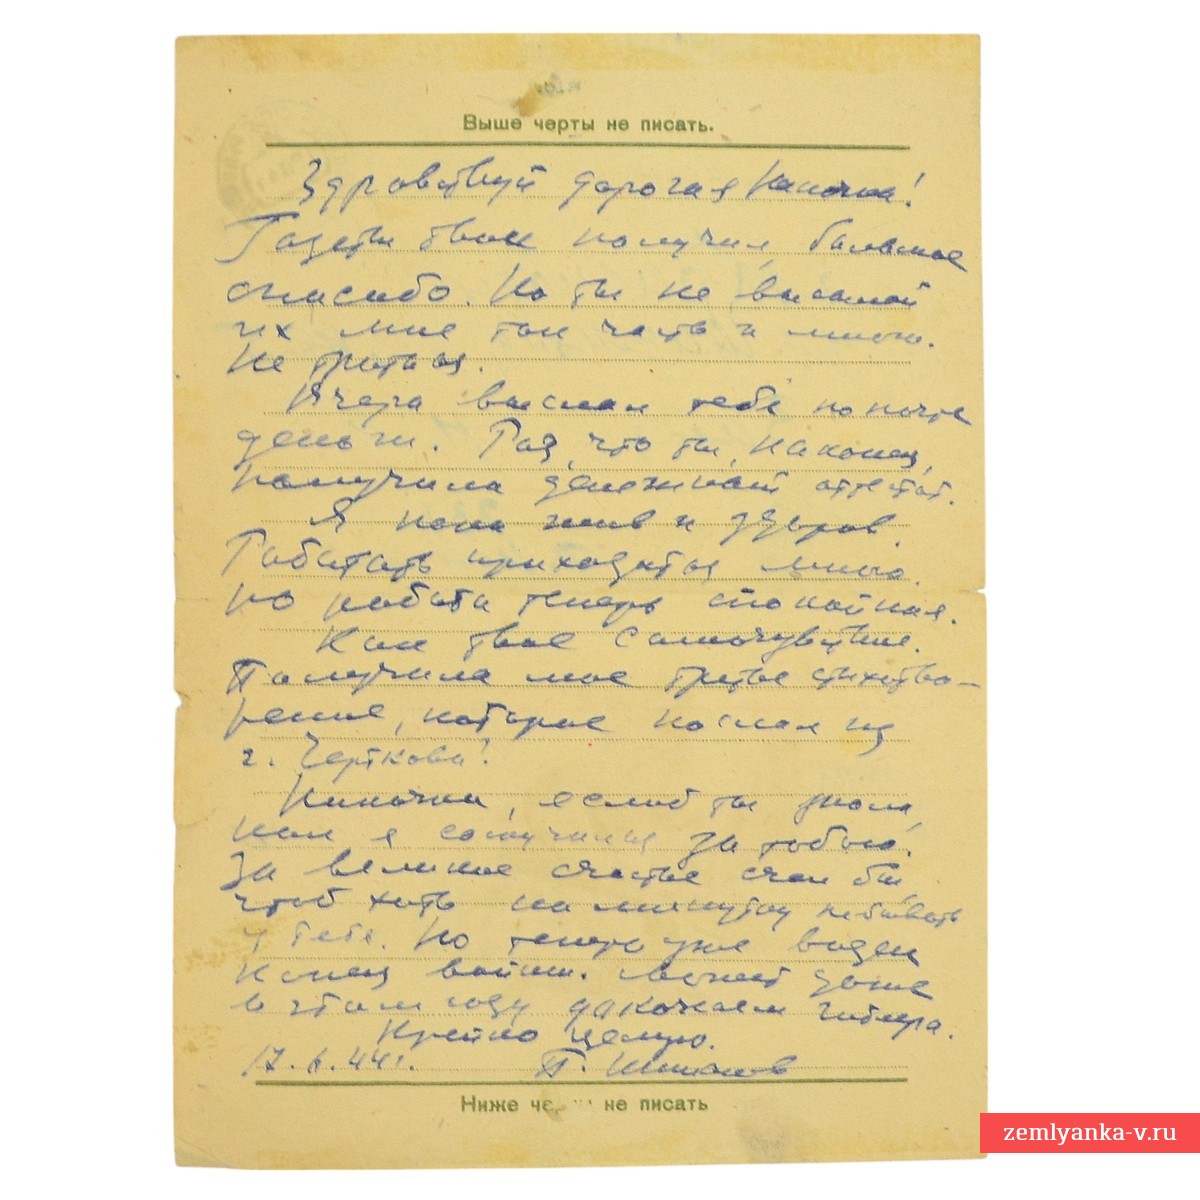 Выше черты не писать.
Здравствуй дорогая Ниночка!
Газеты твои получил, большое
спасибо. Но ты не высылай
их мне так часто и много.
Не траться.
Вчера выслал тебе по почте
деньги. Рад, что ты, наконец,
получила денежный аттестат.
Я пока жив и здоров.
Работать приходится много.
Но работа теперь спокойная.
Как твое самочувствие.
Получила мое третье стихотво-
рение, которое послал из
г. Черткова?
Ниночка, еслиб ты знала,
как я соскучился за тобою.
За великое счастье счел бы,
чтоб хоть на минутку побывать
у тебя. Но теперь уже виден
конец войны. Может даже
в этом году доконаем Гитлера.
Крепко целую.
17.6.44г. П.
Ниже че не писать
zemlyanka-v.ru